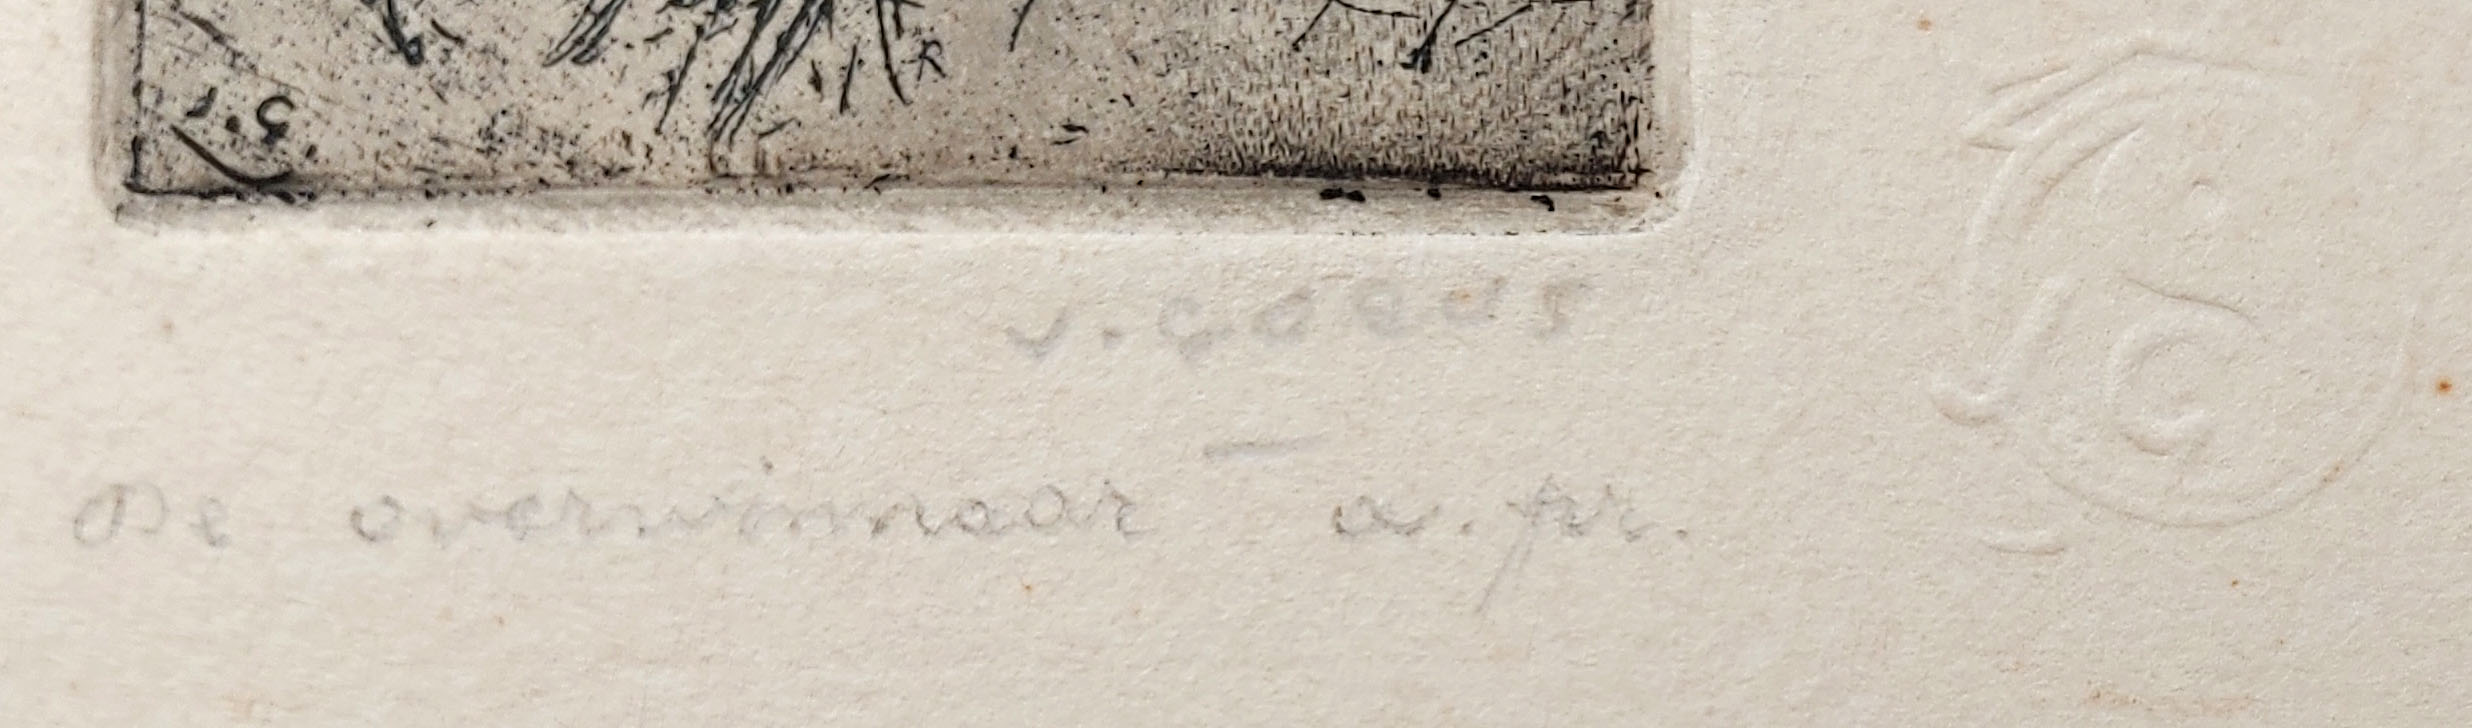 R
J. Goeus
De overwinnaar a. pr.